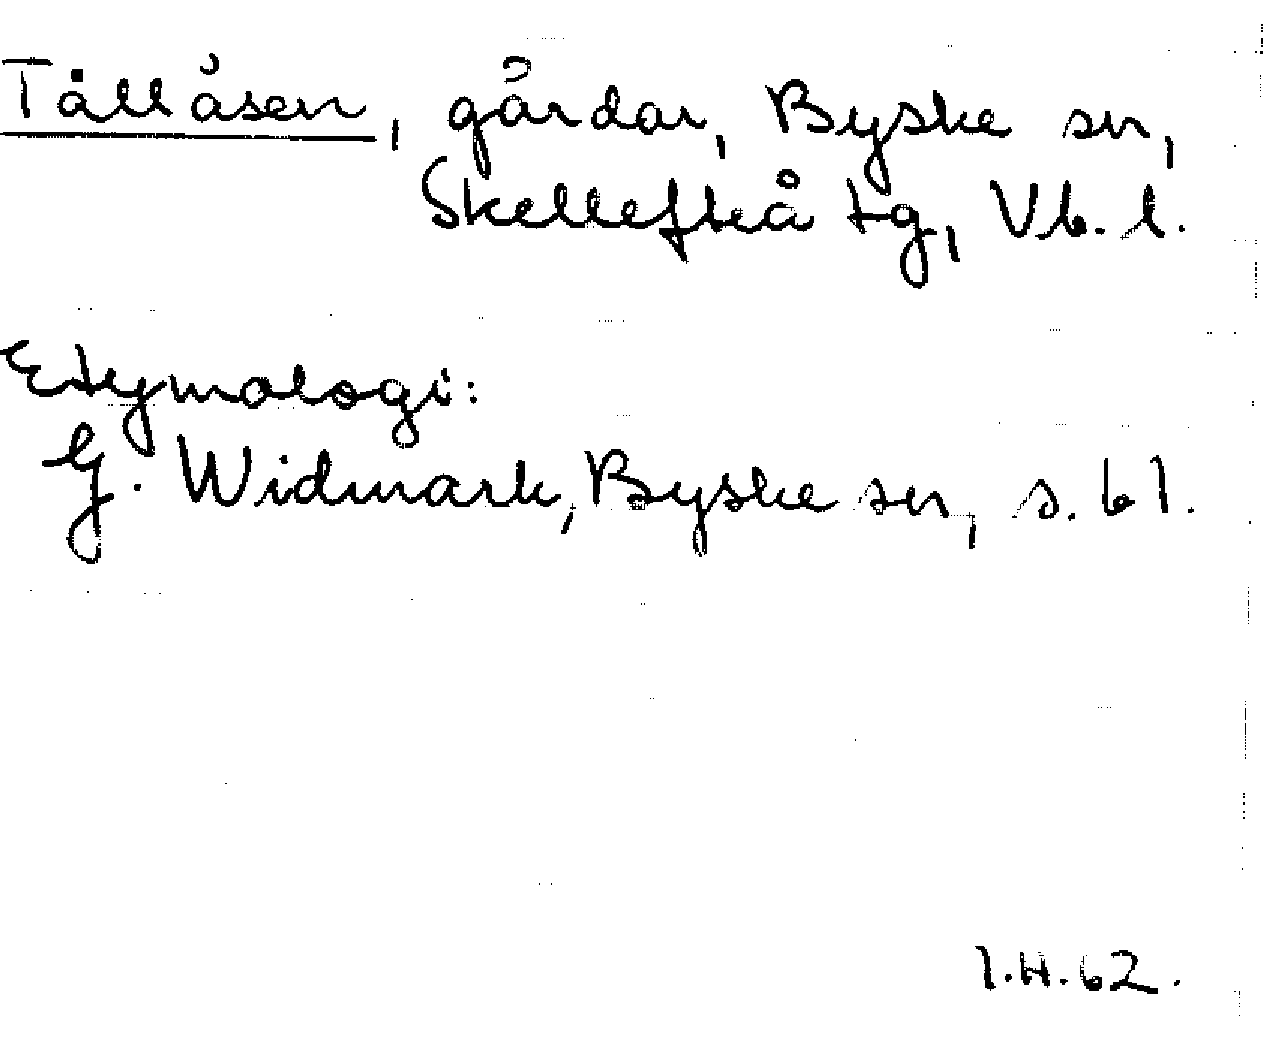 Tållåsen, gårdar, Byske sn,
Skellefteå tg, Vb. l.
Etymologi:
G. Widmark, Byske sn, s. 61.
I.H.62.